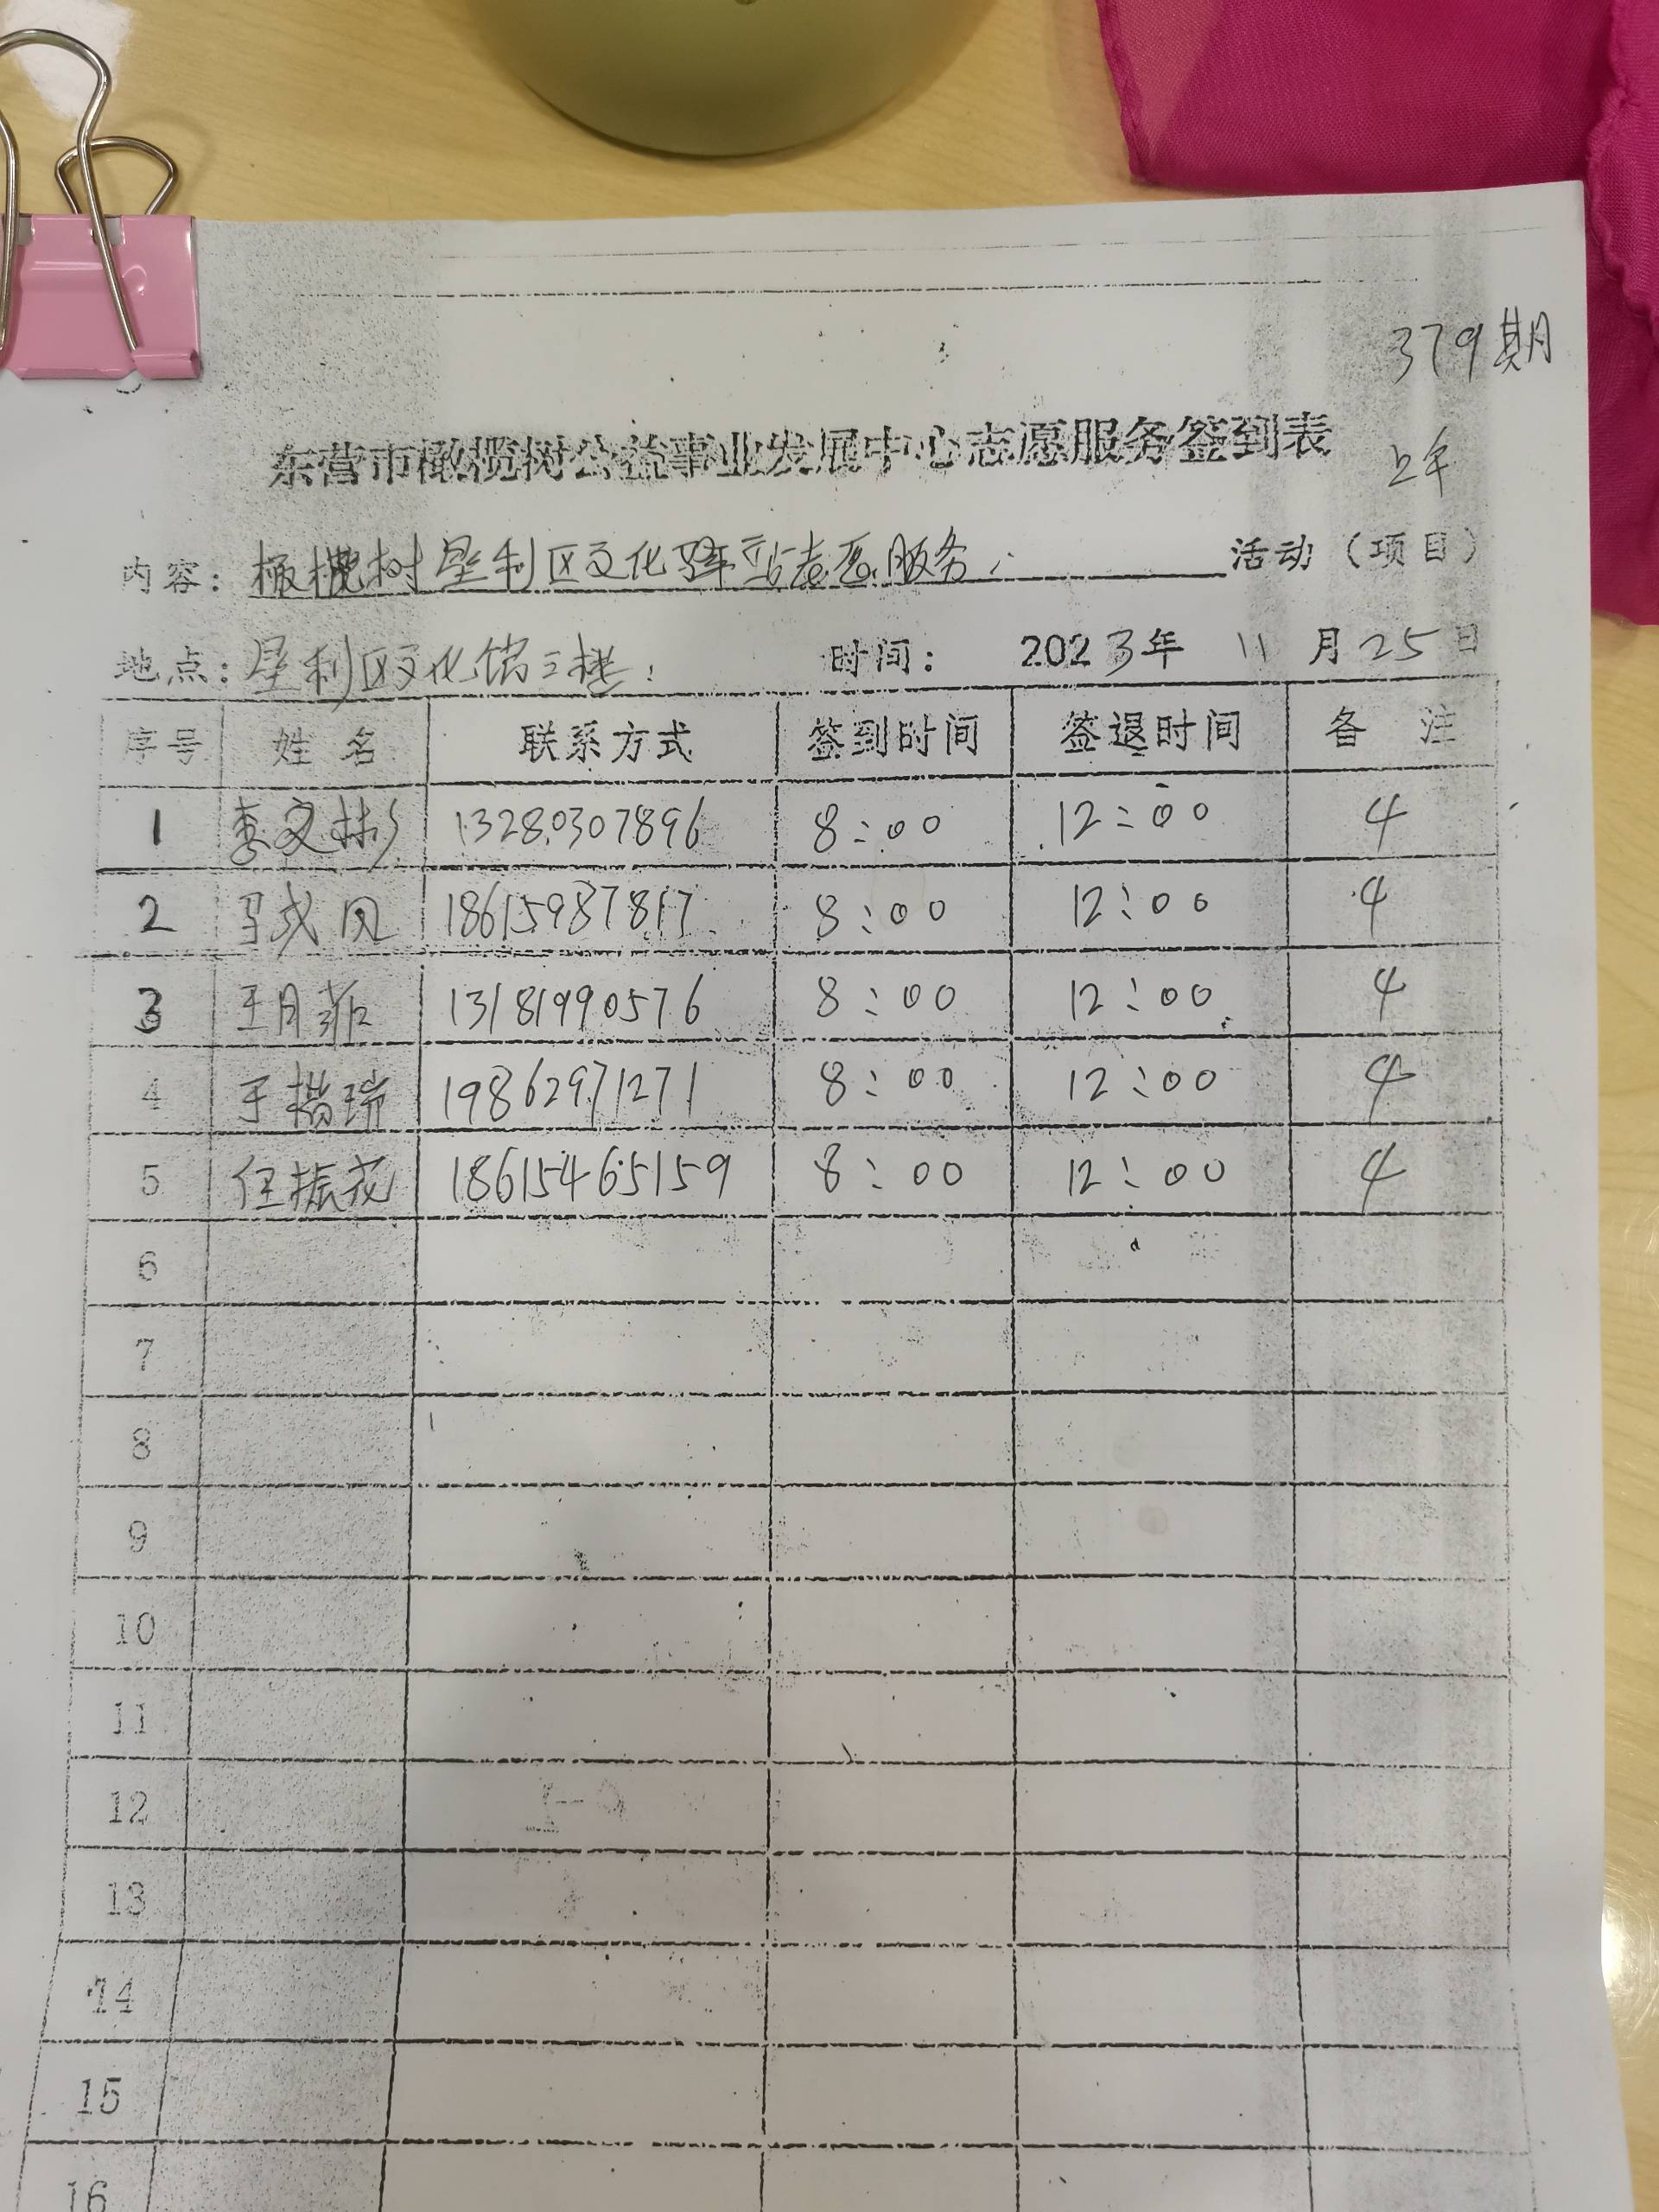 379期
东营市橄榄树公益事业发展中心志愿服务签到表
上午
内容: 橄榄树垦利区文化驿站志愿服务. 活动(项目)
地点: 垦利区文化馆三楼. 时间: 2023年 11 月 25 日
序号 姓 名 联系方式 签到时间 签退时间 备 注
1 李文彬 13280307896 8:00 12:00 4
2 18615987817 8:00 12:00 4
3 王月菲 13181990576 8:00 12:00 4
4 19862971271 8:00 12:00 4
5 任振花 18615465159 8:00 12:00 4
6
7
8
9
10
11
12
13
14
15
16